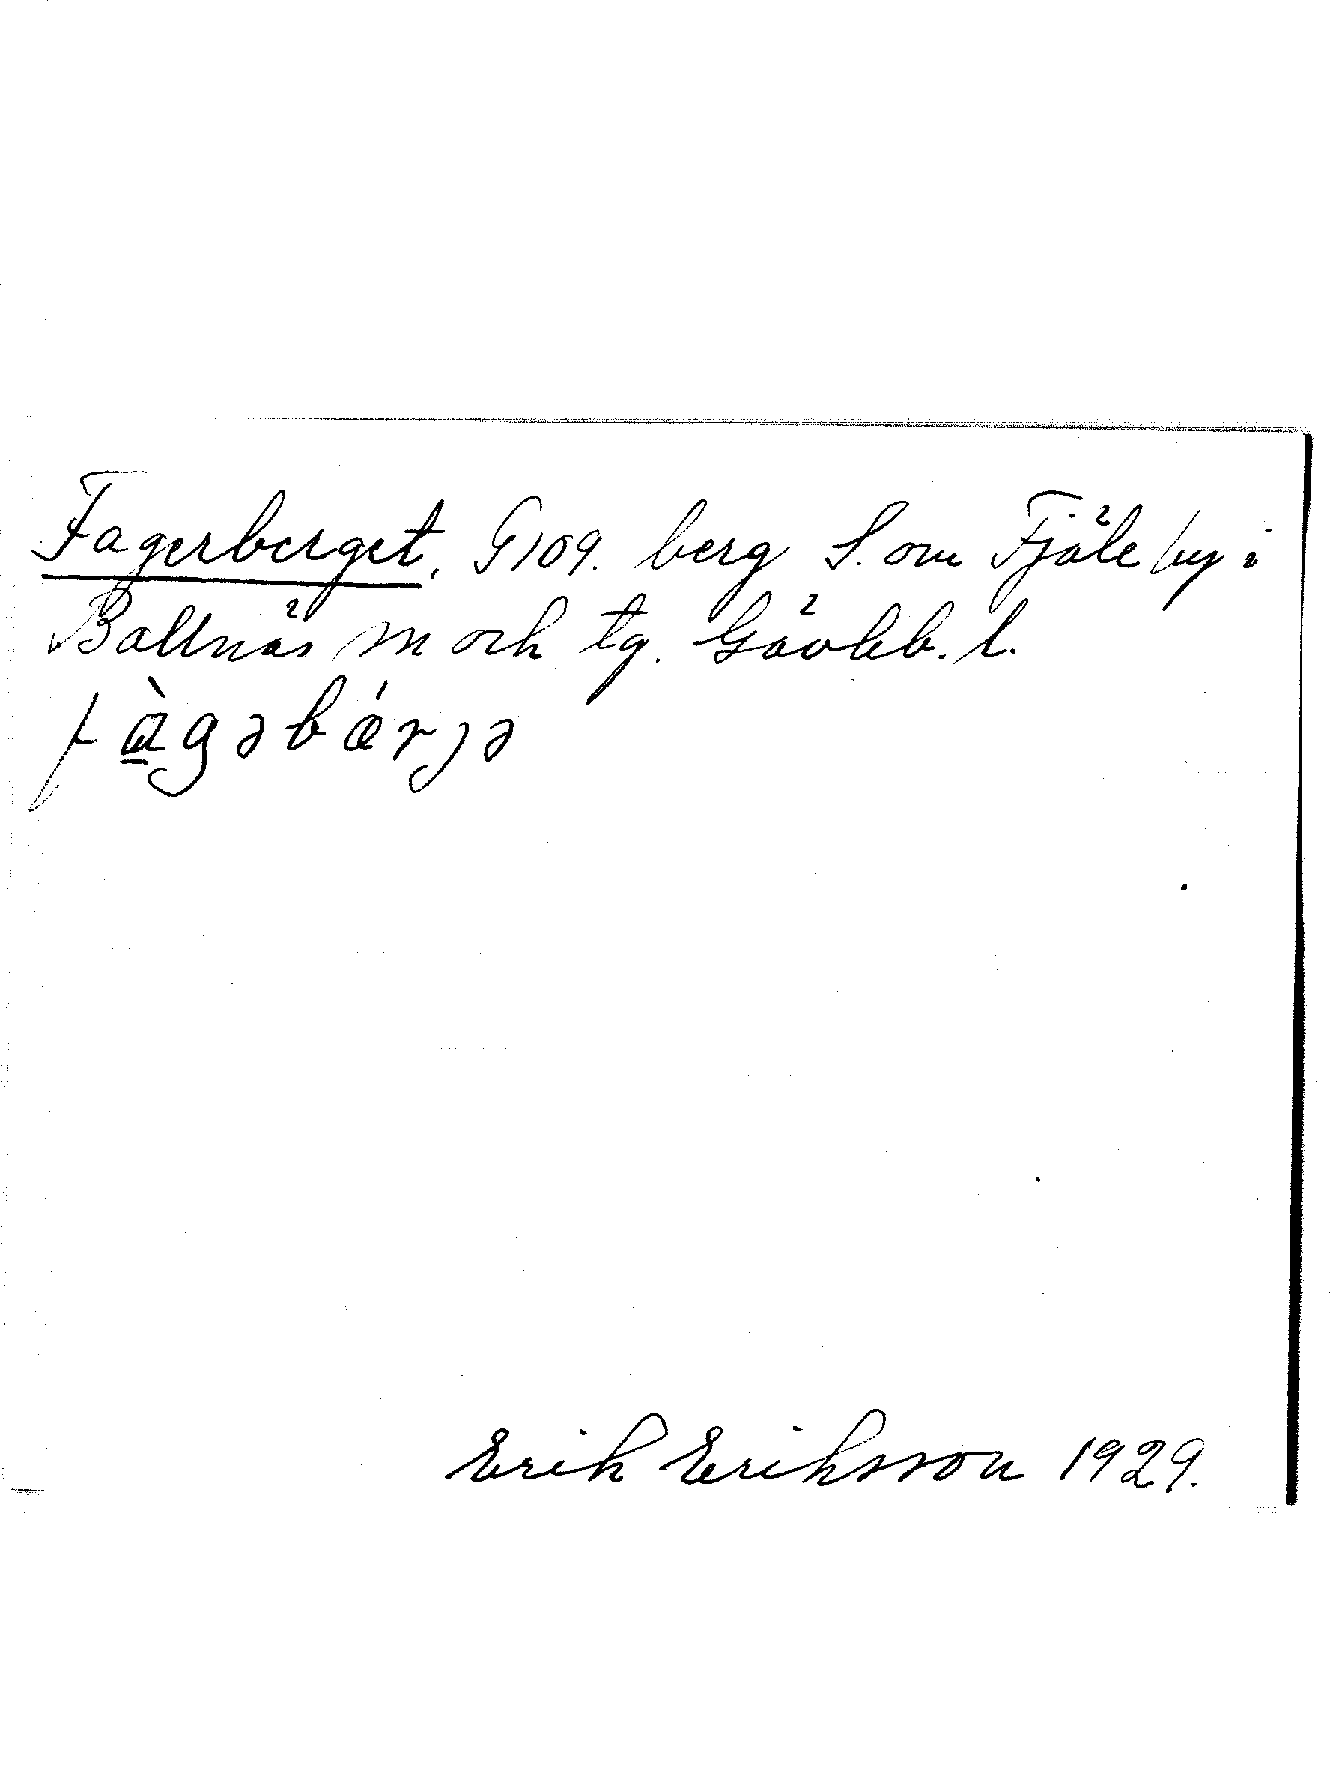 Fagerberget. G109. berg S. om Fjäle by i
Bollnäs sn och tg. Gävleb. l.
fàgəbárjə
Erik Eriksson 1929.